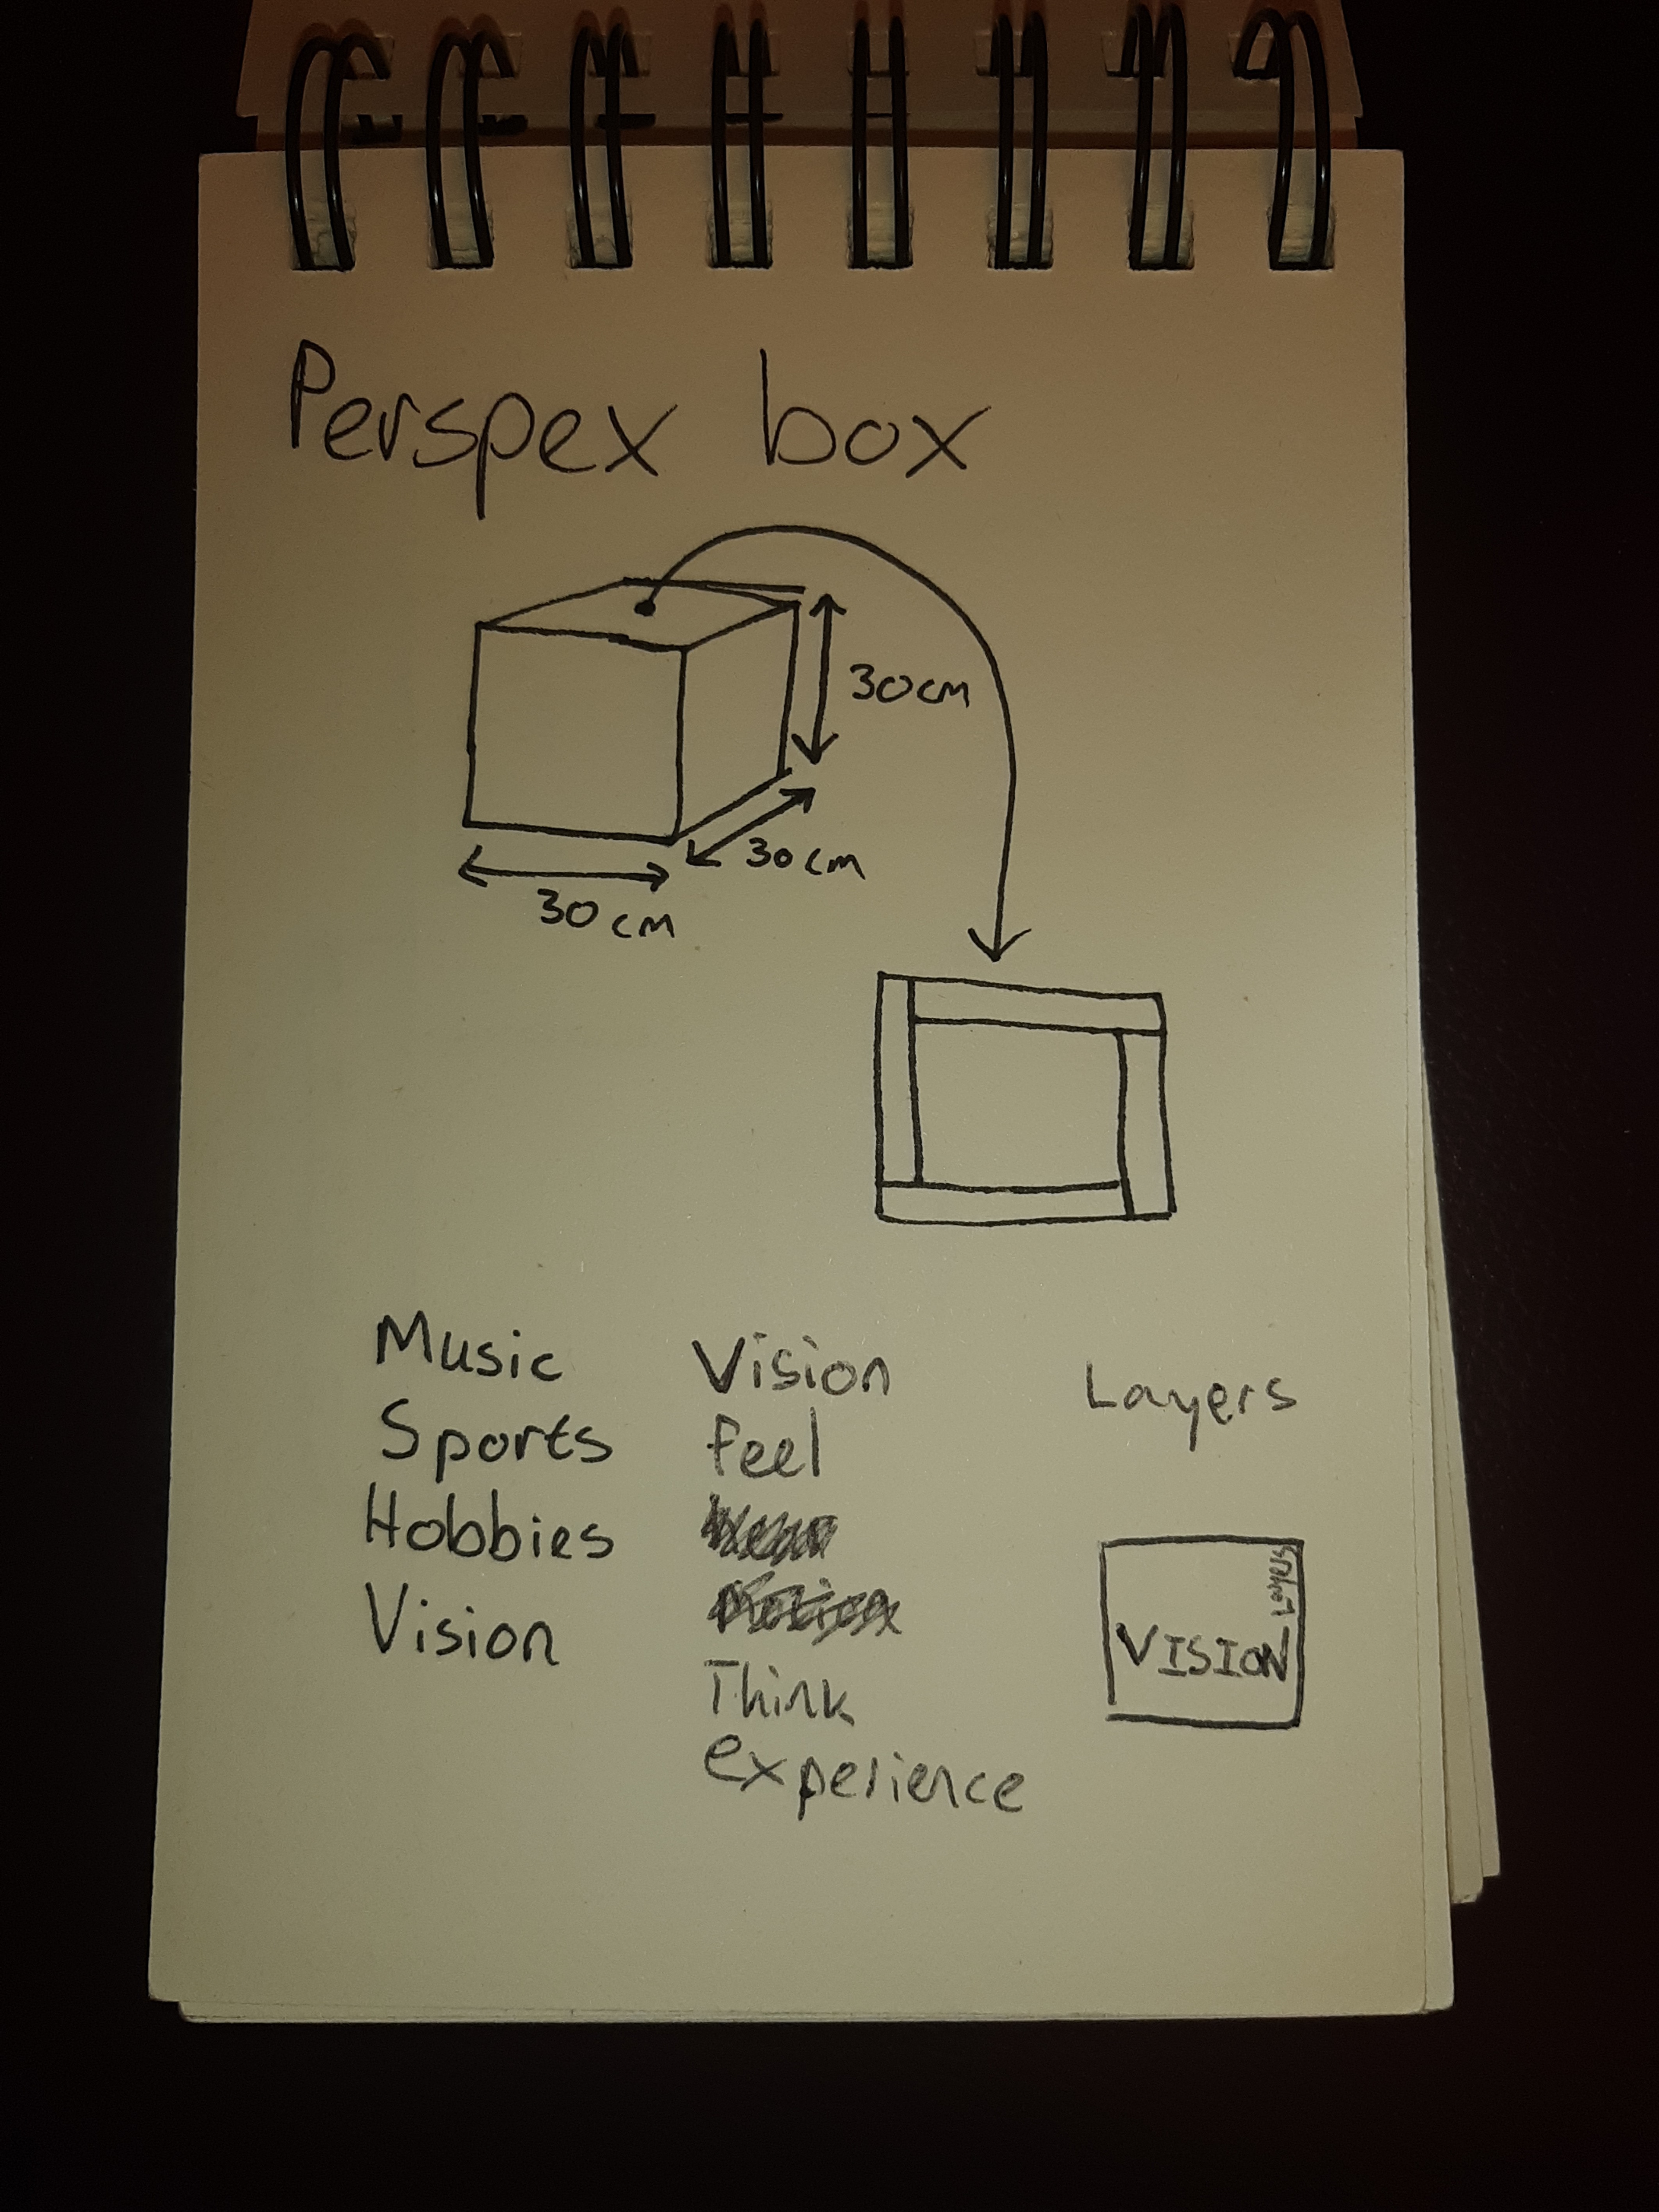 Perspex box
30cm
30cm
30cm
Music
Sports
Hobbies
Vision
Vision
feel
Think
experience
Layers
Layers
VISION